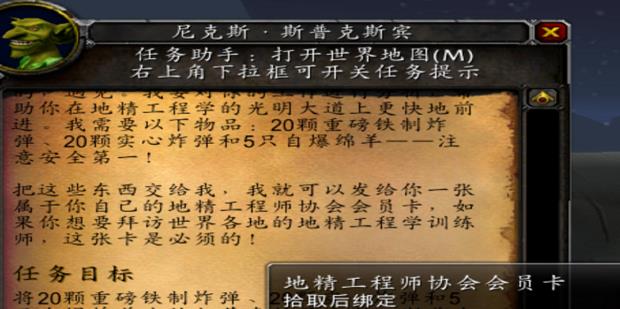 尼克斯·斯普克斯宾
任务助手：打开世界地图(M)
右上角下拉框可开关任务提示
助你在地精工程学的光明大道上更快地前
进。我需要以下物品：20颗重磅铁制炸
弹、20颗实心炸弹和5只自爆绵羊——注
意安全第一！
把这些东西交给我，我就可以发给你一张
属于你自己的地精工程师协会会员卡，如
果你想要拜访世界各地的地精工程学训练
师，这张卡是必须的！
任务目标
地精工程师协会会员卡
将20颗重磅铁制炸弹、
拾取后绑定